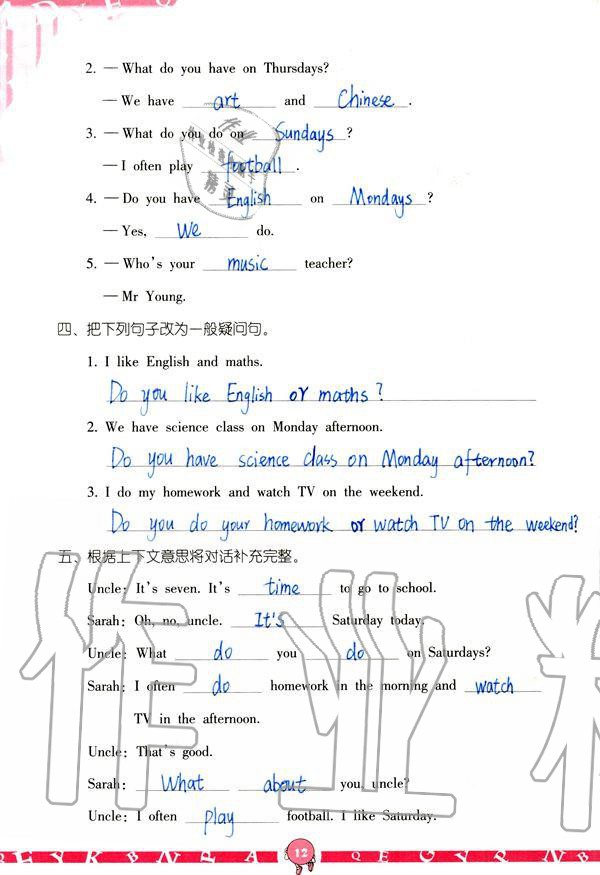 2. — What do you have on Thursdays?
— We have art and Chinese.
3. — What do you do on Sundays?
— I often play football.
4. — Do you have English on Mondays?
— Yes, We do.
5. — Who's your music teacher?
— Mr Young.
四、把下列句子改为一般疑问句。
1. I like English and maths.
Do you like English or maths?
2. We have science class on Monday afternoon.
Do you have science class on Monday afternoon?
3. I do my homework and watch TV on the weekend.
Do you do your homework or watch TV on the weekend?
五、根据上下文意思将对话补充完整。
Uncle: It's seven. It's time to go to school.
Sarah: Oh, no, uncle. It's Saturday today.
Uncle: What do you do on Saturdays?
Sarah: I often do homework in the morning and watch
TV in the afternoon.
Uncle: That's good.
Sarah: What about you, uncle?
Uncle: I often play football. I like Saturday.
12